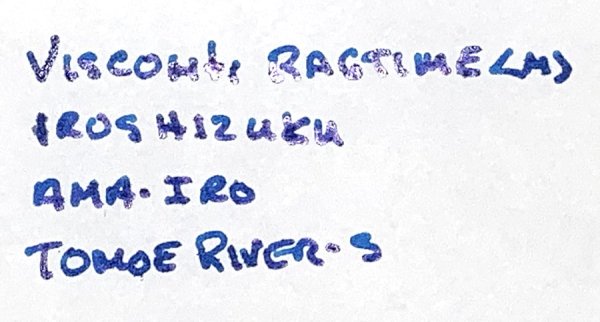 VISCONti RAGTIME <M>
IROSHIZUKU
AMA-IRO
TOMOE RIVER-S